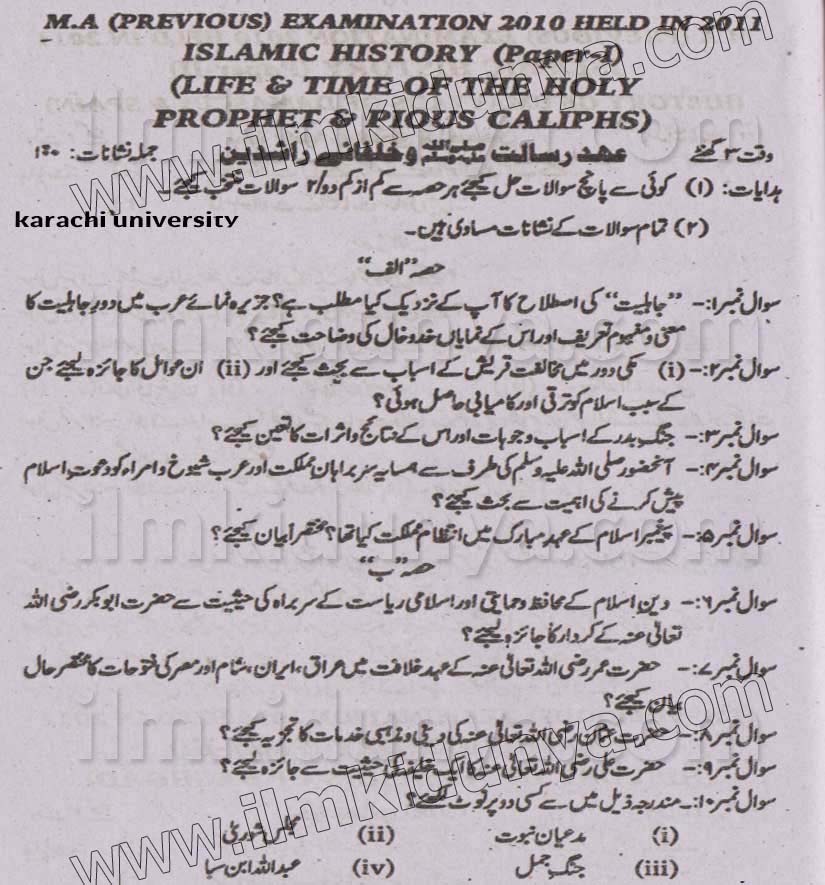 M.A (PREVIOUS) EXAMINATION 2010 HELD IN 2011
ISLAMIC HISTORY (Paper-I)
(LIFE & TIME OF THE HOLY
PROPHET & PIOUS CALIPHS)
وقت ۳ گھنٹے عہد رسالت ﷺ و خلفائے راشدین جملہ نشانات: ۱۰۰
ہدایات: (۱) کوئی سے پانچ سوالات حل کیجئے ہر حصہ سے کم از کم دو/۲ سوالات منتخب کیجئے۔
karachi university
(۲) تمام سوالات کے نشانات مساوی ہیں۔
حصہ "الف"
سوال نمبر۱:- "جاہلیت" کی اصطلاح کا آپ کے نزدیک کیا مطلب ہے؟ جزیرہ نمائے عرب میں دورِ جاہلیت کا
معنی و مفہوم تعریف اور اس کے نمایاں خدوخال کی وضاحت کیجئے؟
سوال نمبر۲:- (i) مکی دور میں مخالفت قریش کے اسباب سے بحث کیجئے اور (ii) ان عوامل کا جائزہ لیجئے جن
کے سبب اسلام کو ترقی اور کامیابی حاصل ہوئی؟
سوال نمبر۳:- جنگِ بدر کے اسباب وجوہات اور اس کے نتائج و اثرات کا تعین کیجئے؟
سوال نمبر۴:- آنحضور صلی اللہ علیہ وسلم کی طرف سے ہمسایہ سربراہانِ مملکت اور عرب شیوخ و امراء کو دعوتِ اسلام
پیش کرنے کی اہمیت سے بحث کیجئے؟
سوال نمبر۵:- پیغمبرِ اسلام کے عہد مبارک میں انتظام مملکت کیا تھا؟ مختصراً بیان کیجئے؟
حصہ "ب"
سوال نمبر۶:- دینِ اسلام کے محافظ و حمایتی اور اسلامی ریاست کے سربراہ کی حیثیت سے حضرت ابوبکر رضی اللہ
تعالیٰ عنہ کے کردار کا جائزہ لیجئے؟
سوال نمبر۷:- حضرت عمر رضی اللہ تعالیٰ عنہ کے عہد خلافت میں عراق، ایران، شام اور مصر کی فتوحات کا مختصر حال
بیان کیجئے؟
سوال نمبر۸:- حضرت عثمان رضی اللہ تعالیٰ عنہ کی دینی و مذہبی خدمات کا تجزیہ کیجئے؟
سوال نمبر۹:- حضرت علی رضی اللہ تعالیٰ عنہ کا ایک خلیفہ کی حیثیت سے جائزہ لیجئے؟
سوال نمبر۱۰:- مندرجہ ذیل میں سے کسی دو پر نوٹ لکھئے؟
(i) مدعیان نبوت (ii) مجلس شوریٰ
(iii) جنگِ جمل (iv) عبداللہ ابن سبا
www.ilmkidunya.com
ilmkidunya.com
ilmkidunya.com
ilmkidunya.com
ilmkidunya.com
www.ilmkidunya.com